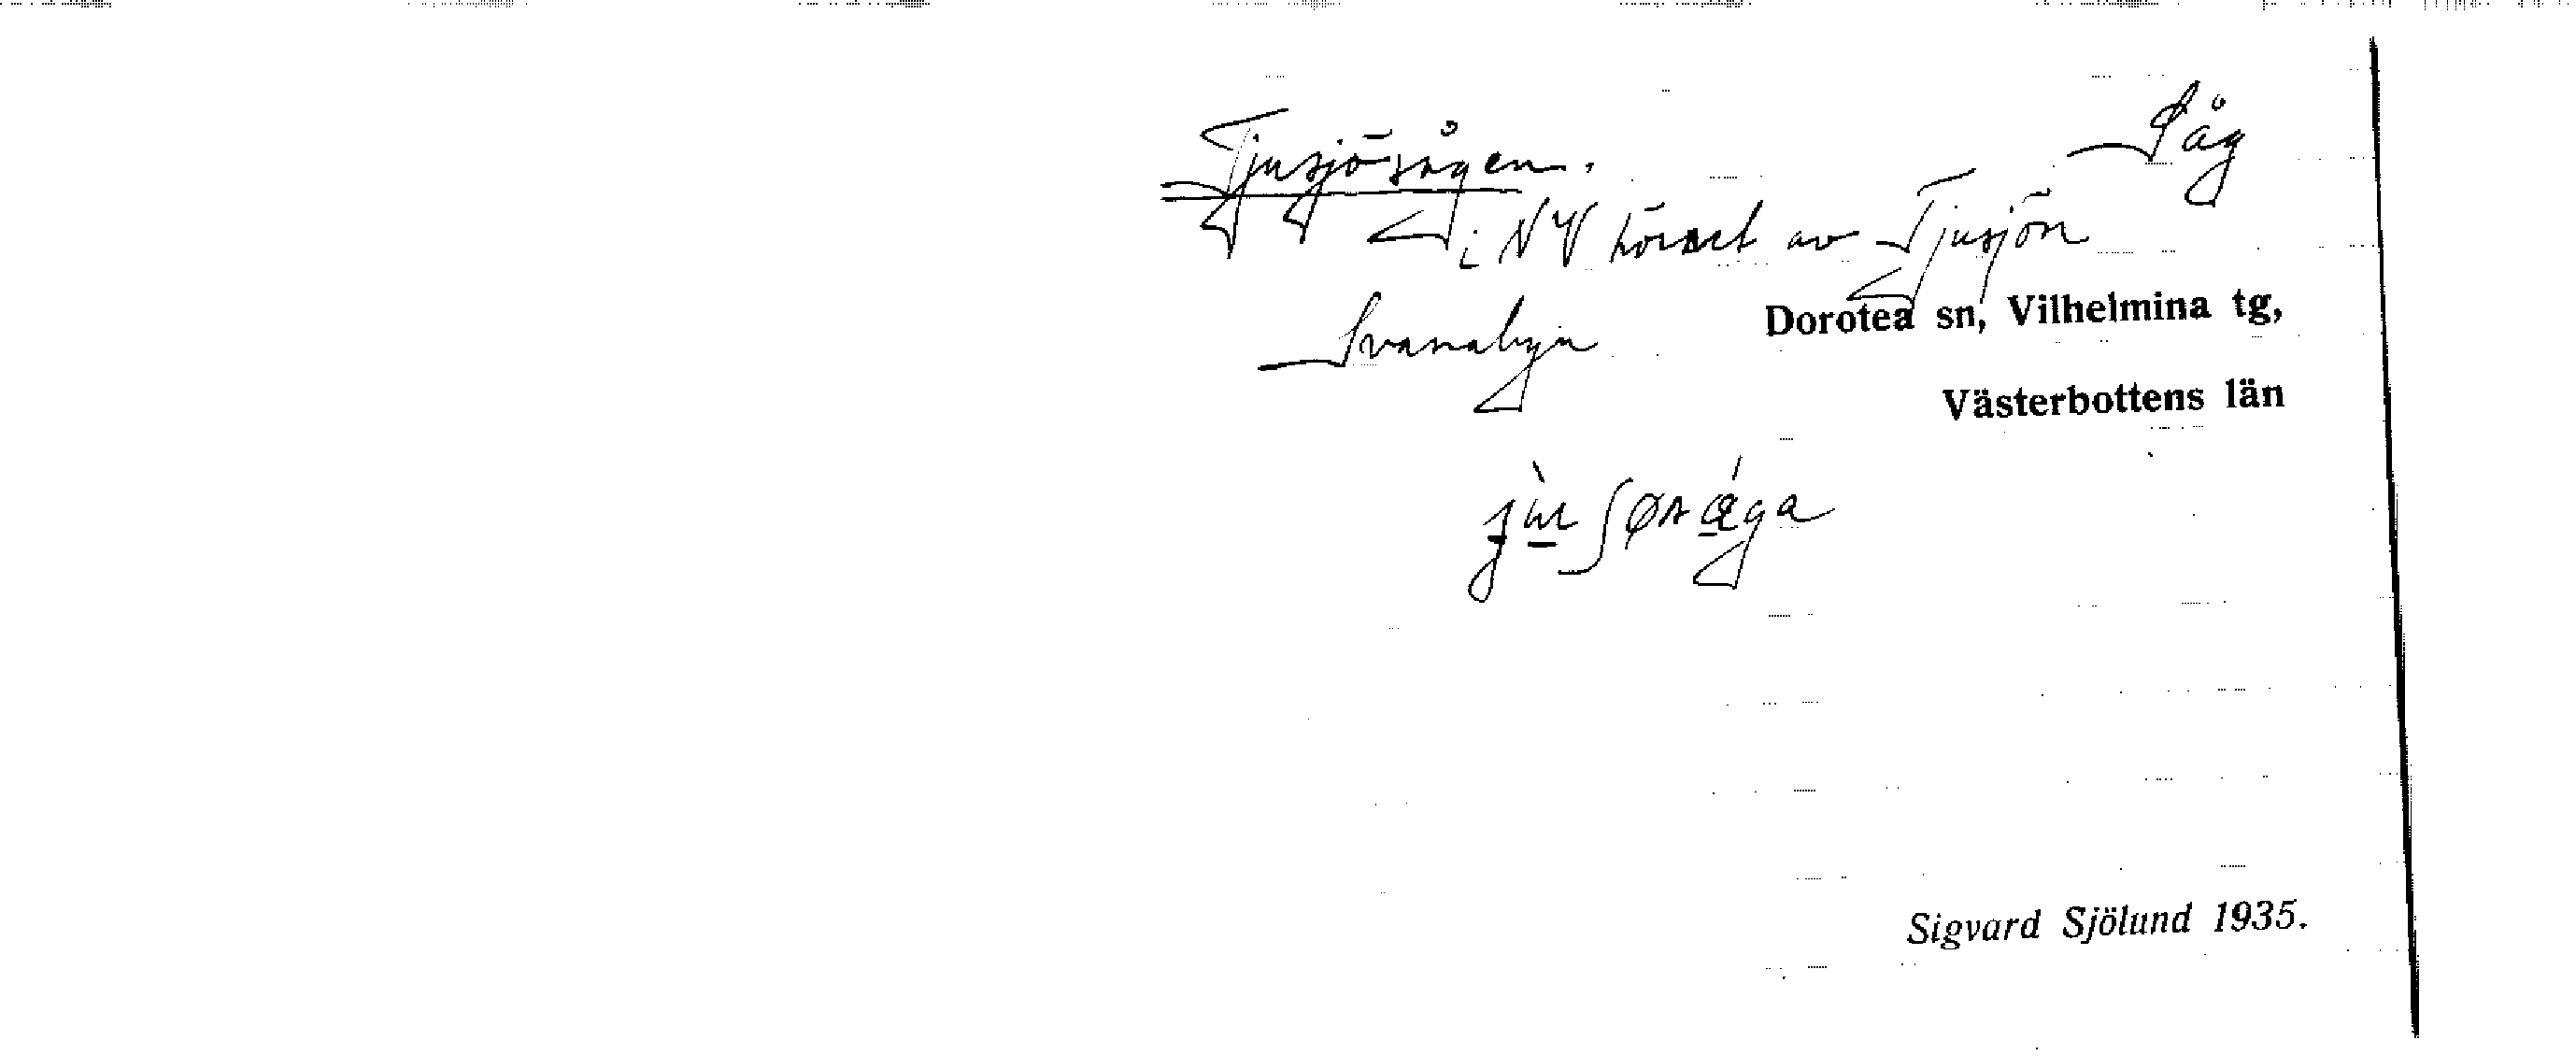 Tjusjösågen.
Såg
i NV hörnet av Tjusjön
Svanabyn
Dorotea sn, Vilhelmina tg,
Västerbottens län
Sigvard Sjölund 1935.